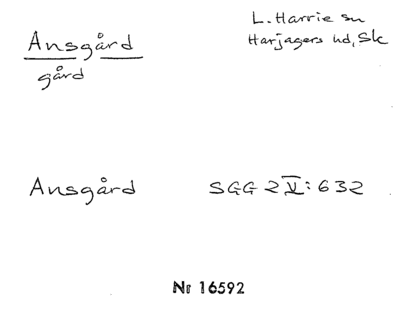 Ansgård
gård
L. Harrie sn
Harjagers hd, Sk
Ansgård SGG 2 V: 632
Nr 16592